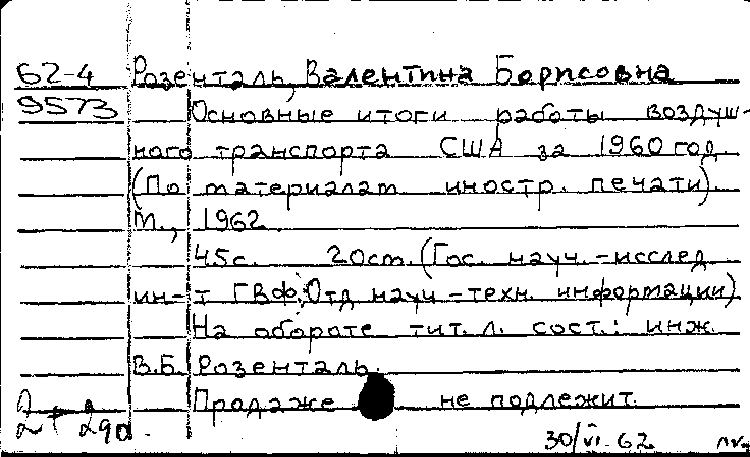 62-4 Розенталь, Валентина Борисовна
9573 Основные итоги работы воздуш-
ного транспорта США за 1960 год.
(По материалам иностр. печати).
М., 1962.
45с. 20см. (Гос. науч.-исслед.
ин-т ГВФ. Отд науч-техн. информации)
На обороте тит. л. сост.: инж.
В.Б. Розенталь.
Продаже не подлежит.
30/VI-62